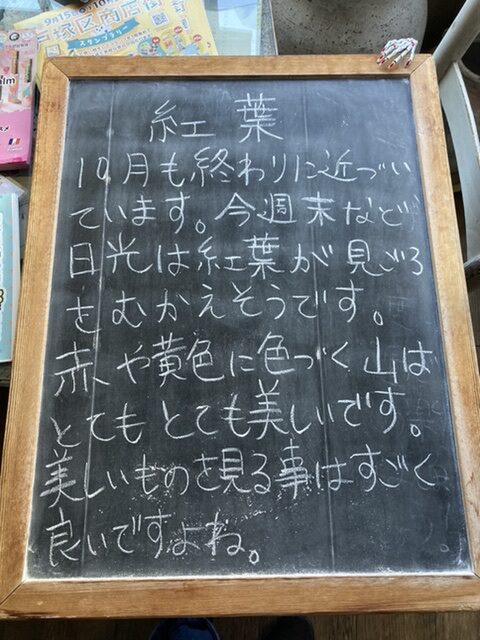 9月15
スタンプラリー
France
紅葉
10月も終わりに近づい
ています。今週末など
日光は紅葉が見ごろ
をむかえそうです。
赤や黄色に色づく山は
とてもとても美しいです。
美しいものを見る事はすごく
良いですよね。